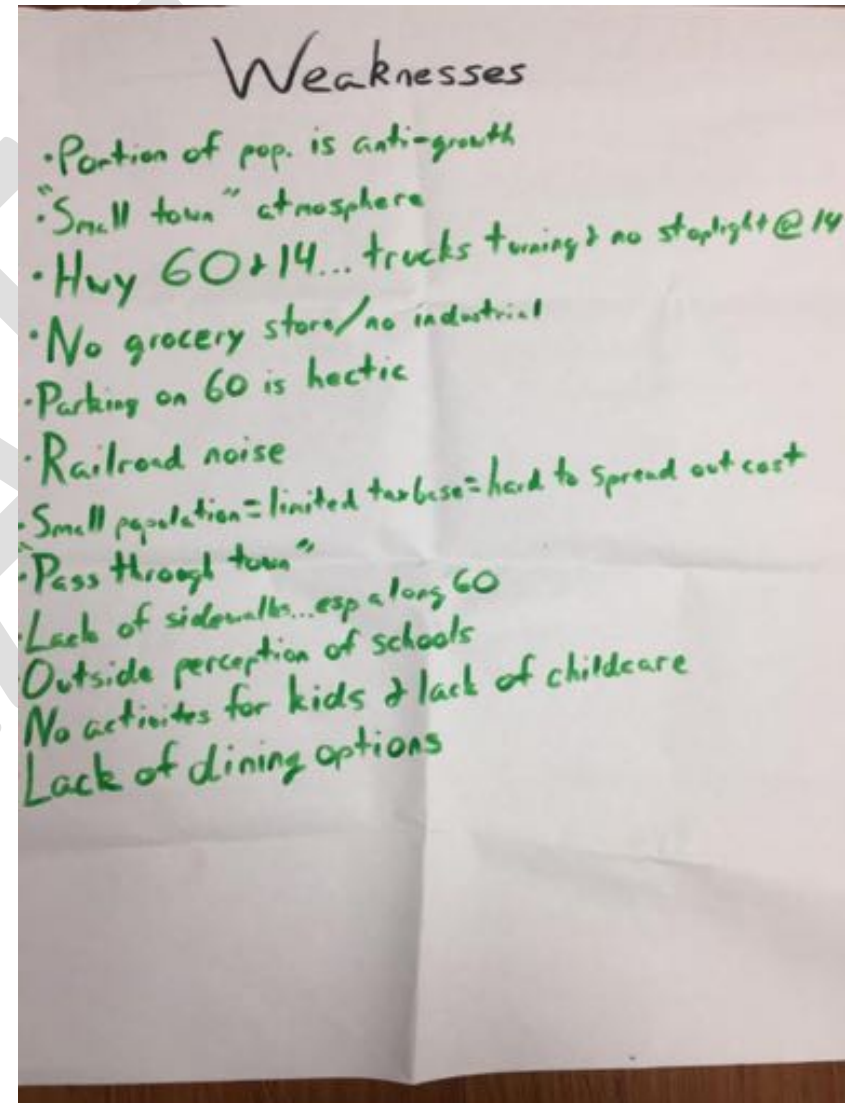 Weaknesses
·Portion of pop. is anti-growth
·"Small town" atmosphere
·Hwy 60 & 14... trucks turning & no stoplight @ 14
·No grocery store/no industrial
·Parking on 60 is hectic
·Railroad noise
·Small population = limited tax base = hard to spread out cost
·"Pass through town"
·Lack of sidewalks...esp along 60
Outside perception of schools
No activites for kids & lack of childcare
Lack of dining options